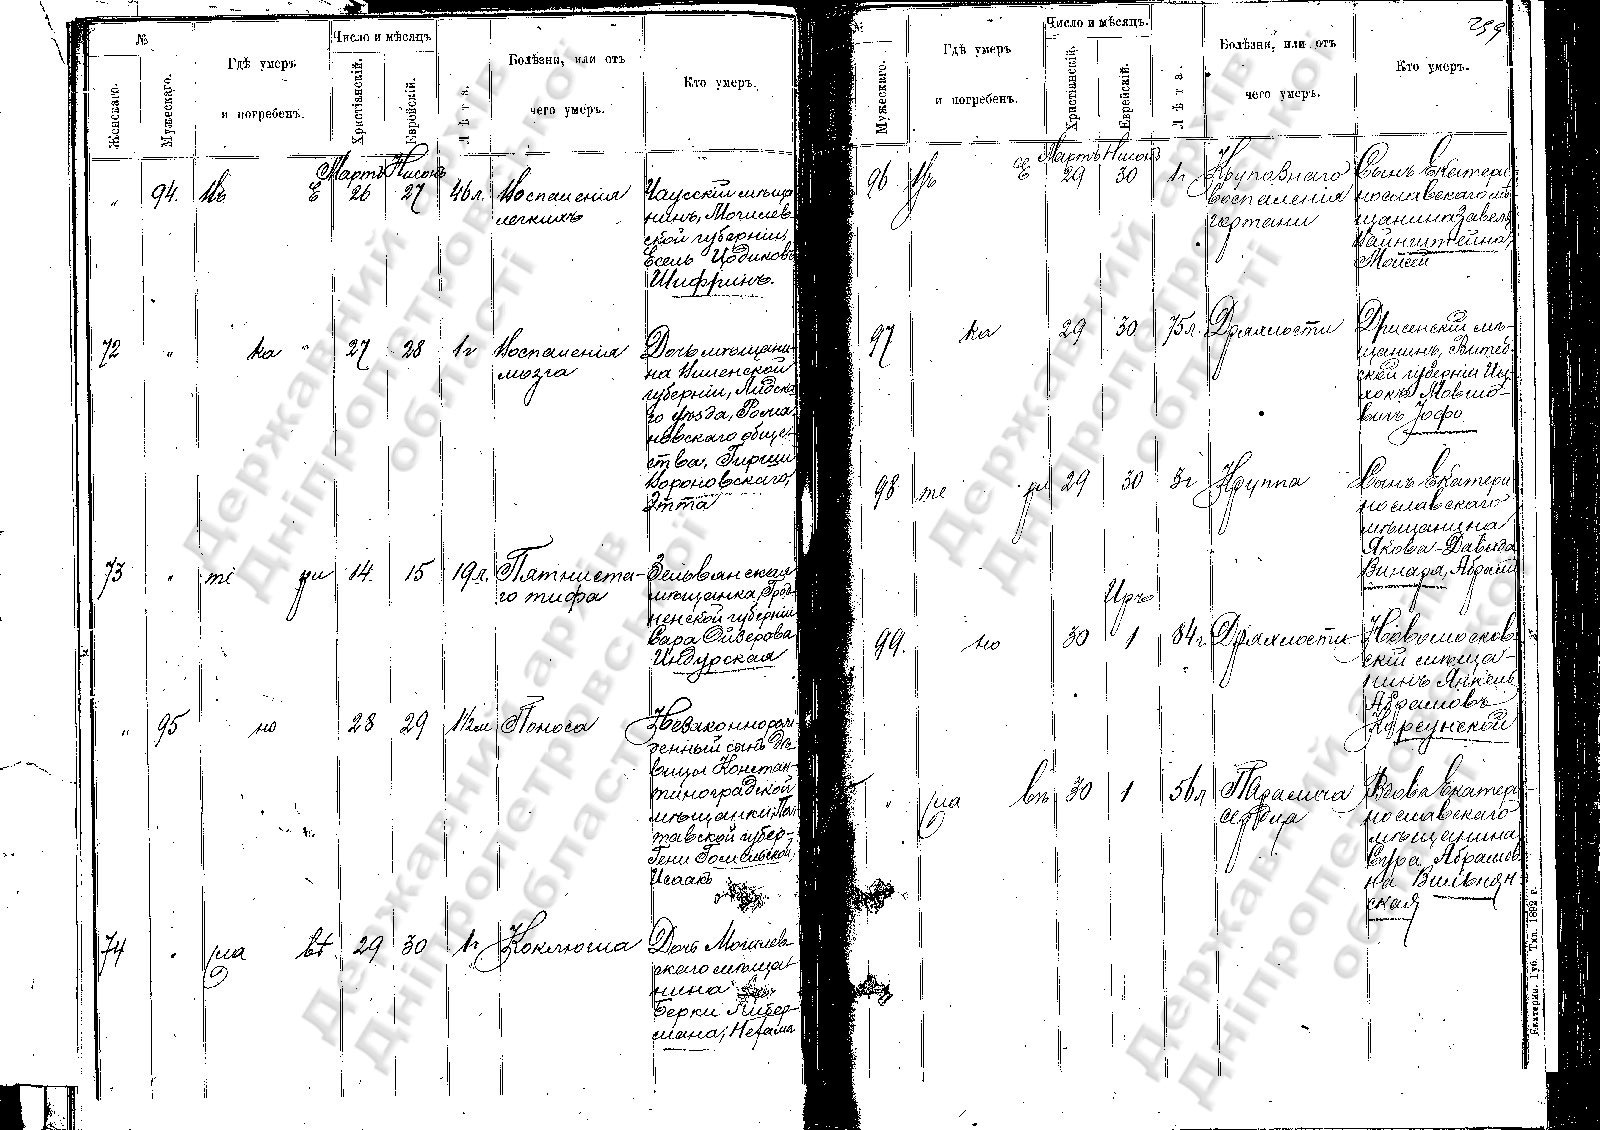 №
Женскаго.
Мужескаго.
Гдѣ умеръ
и погребенъ.
Число и мѣсяцъ
Христіанскій.
Еврейскій.
Лѣта.
Болѣзни, или отъ
чего умеръ.
Кто умеръ.
Мартъ Нисонъ
„ 94. Въ Е 26 27 46 л. Воспаленія
легкихъ
Чаусскій мѣща
нинъ, Могилев
ской губерніи,
Есель Цодиковъ
Шифринъ.
72 „ ка „ 27 28 1 г Воспаленія
мозга
Дочь мѣщани-
на Виленской
губерніи, Лидска
го уѣзда, Рома
новскаго обще-
ства, Гирши
Вороновскаго,
Этта
73 „ те ри 14. 15 19 л. Пятниста-
го тифа
Зельвянская
мѣщанка, Грод
ненской губерніи
Сара Ойзерова
Индурская
„ 95 но 28 29 1½ м Поноса
Незаконнорож
денный сынъ дѣ
вицы Констан-
тиноградской
мѣщанки, Пол
тавской губер-
Гени
Исаакъ
74 „ сла вѣ. 29 30 1 г Коклюша
Дочь Могилев-
скаго мѣща
нина
Берки Либер-
мана, Нехама
259
№
Мужескаго.
Гдѣ умеръ
и погребенъ.
Число и мѣсяцъ.
Христіанскій.
Еврейскій.
Лѣта.
Болѣзни, или отъ
чего умеръ.
Кто умеръ.
Мартъ Нисонъ
96 Въ Е 29 30 1 г Крупознаго
воспаленія
гортани
Сынъ Екатери
нославскаго мѣ
щанина Завеля
Вайнштейна,
Мойсей
97 ка 29 30 75 л. Дряхлости
Дрисенскій мѣ-
щанинъ, Витеб-
ской губерніи Иц
хокъ Мовшо-
вичъ Іофо
98 те ри 29 30 3 г Круппа
Сынъ Екатери
нославскаго
мѣщанина
Якова-Давида
Винара, Абрамъ
Иръ
99. но 30 1 84 г. Дряхлости
Новомосков-
скій мѣща-
нинъ Янкель
Абрамовъ
Корсунской
„ сла вѣ 30 1 56 л Паралича
сердца
Вдова Екатери-
нославскаго
мѣщанина
Сура Абрамов
на Вильнян
ская
Екатерин. Губ. Тип. 1892 г.
Державний архів
Дніпропетровської
області
Державний архів
Дніпропетровської
області
Державний архів
Дніпропетровської
області
Державний архів
Дніпропетровської
області